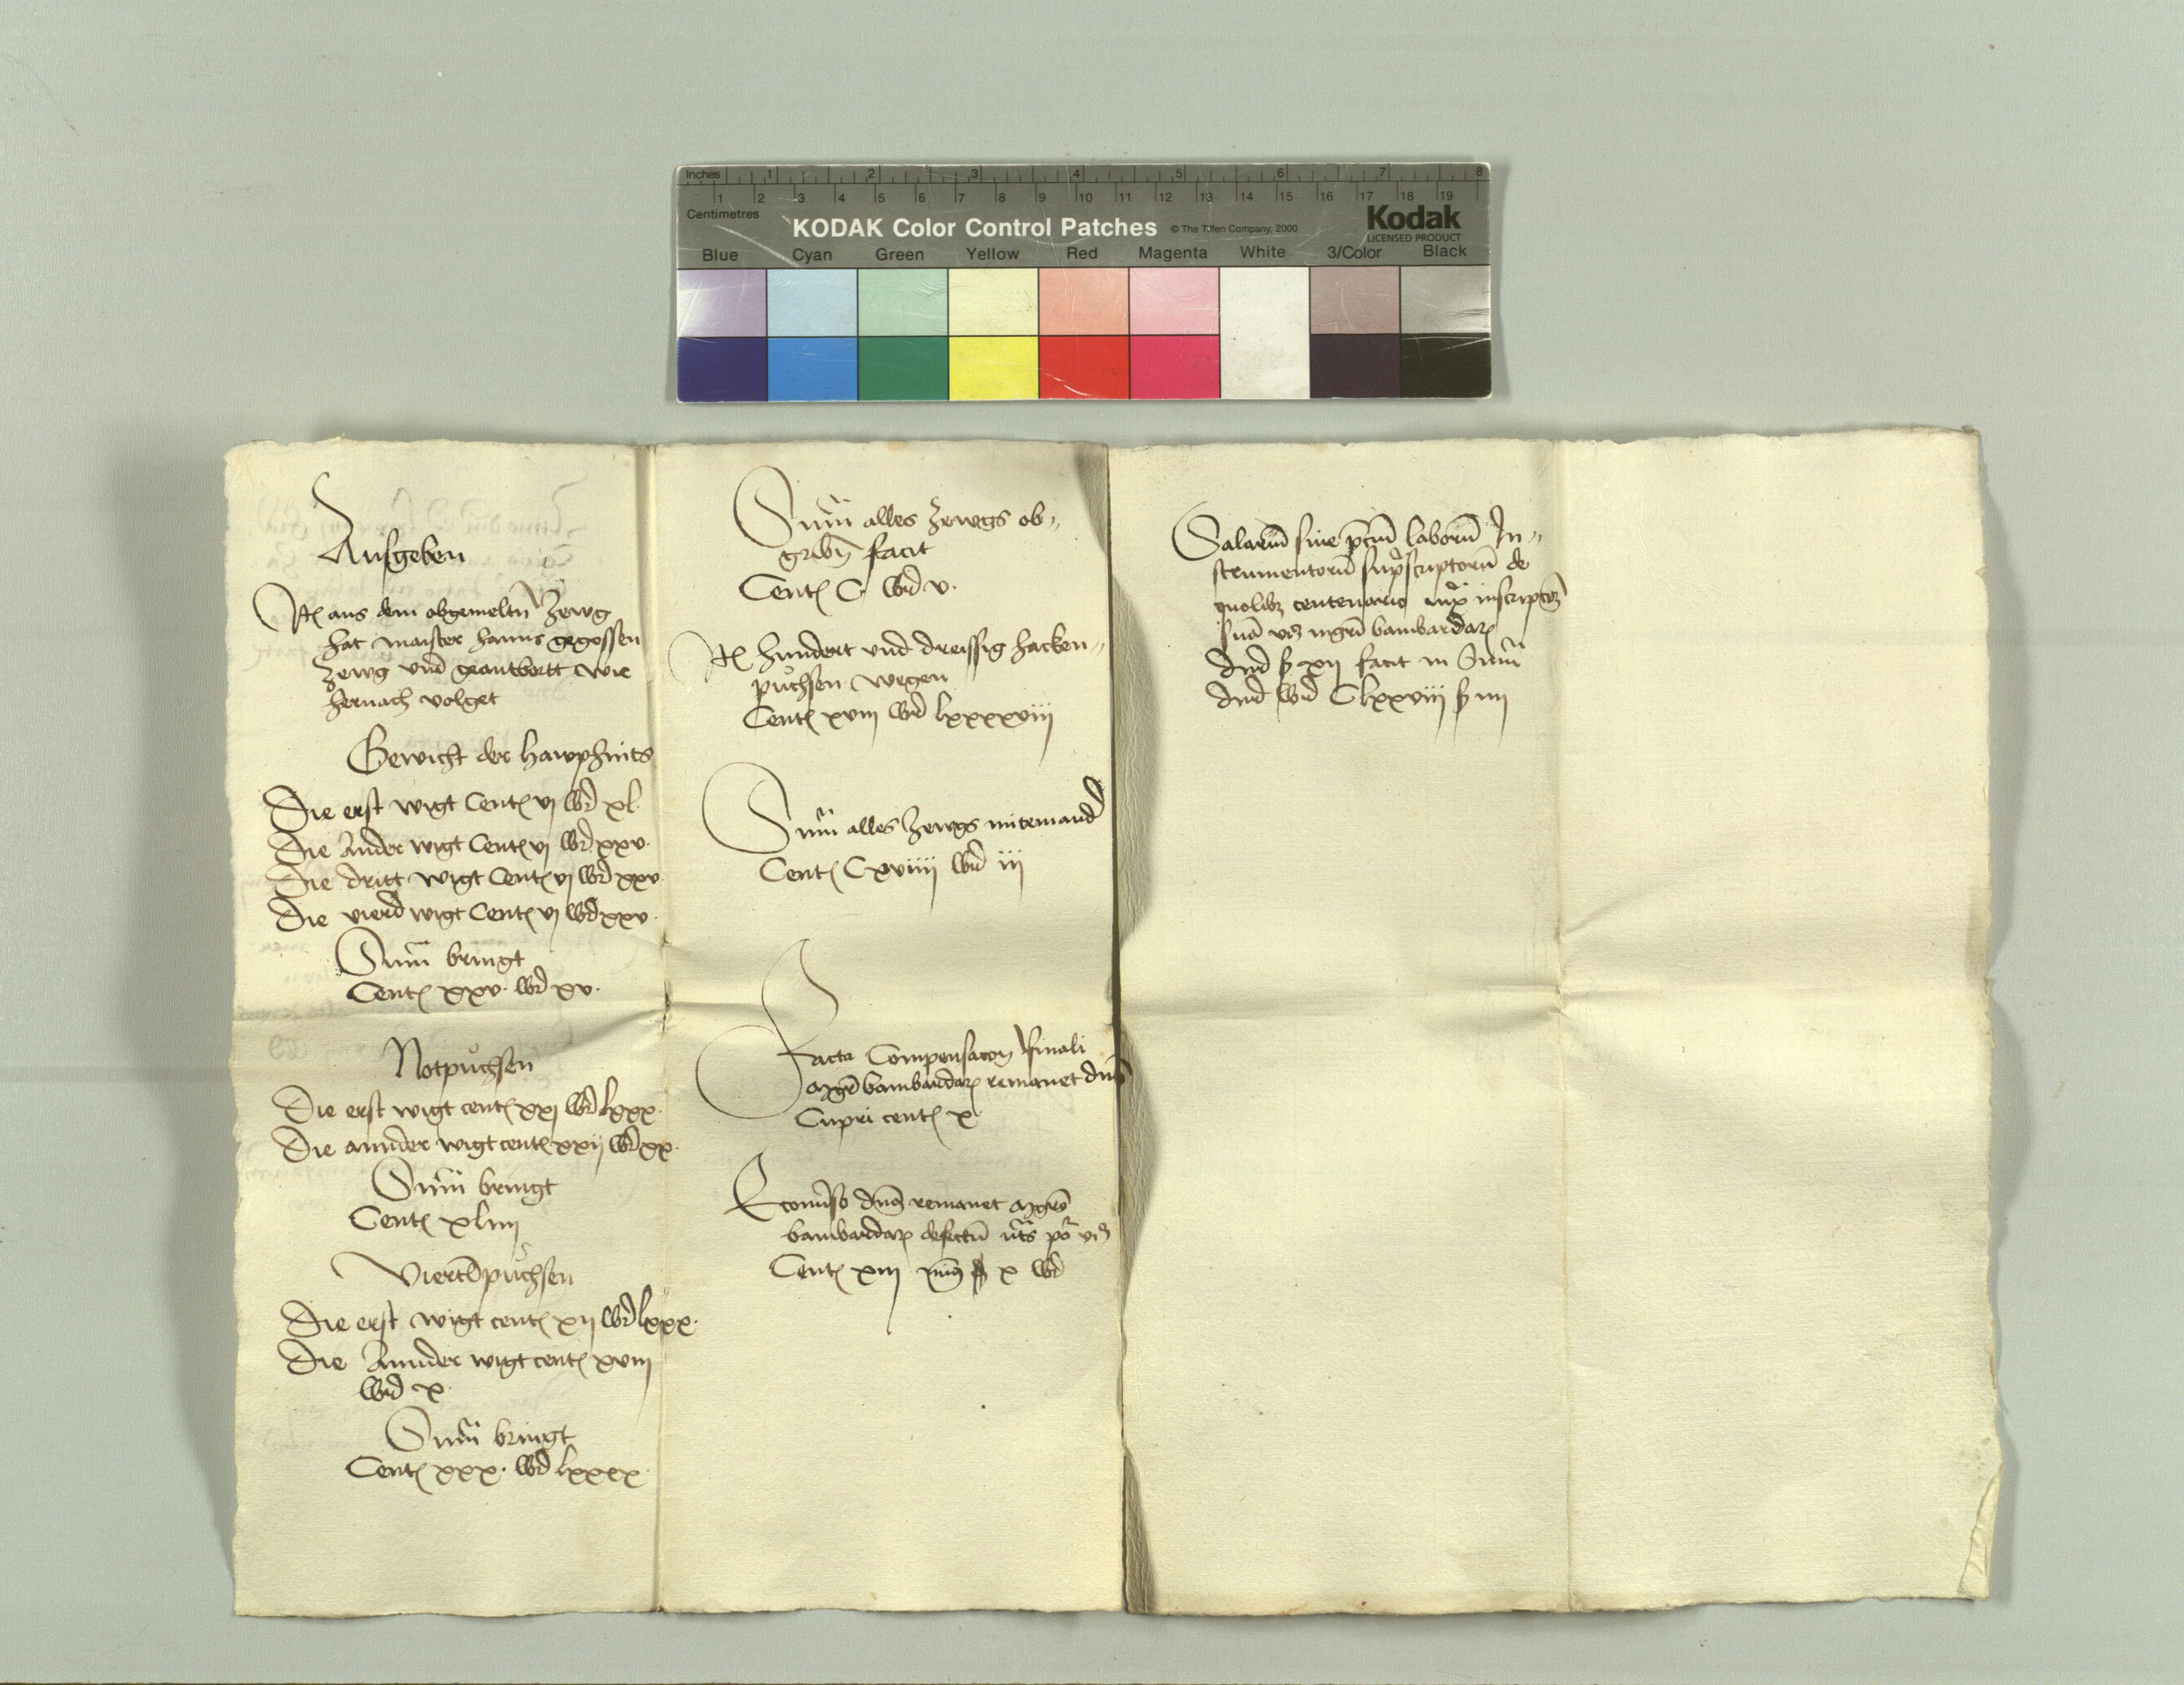 Inches 1 2 3 4 5 6 7 8
1 2 3 4 5 6 7 8 9 10 11 12 13 14 15 16 17 18 19
Centimetres
KODAK Color Control Patches © The Tiffen Company, 2000 Kodak
LICENSED PRODUCT
Blue Cyan Green Yellow Red Magenta White 3/Color Black
Ausgeben
It aus dem obgemeltn Zewg
hat maister hanns gegossen
Zewg und geantbortt wie
hernach volget
Gewicht der hawphnits
Die erst wigt Cent vj lbr xl.
Die Ander wigt Cent vj lbr xxv.
Die dritt wigt Cent vj lbr xxv
Die vierd wigt Cent vj lbr xxv.
Sum̄ bringt
Cent xxv. lbr xv.
Notpüchsen
Die erst wigt cent xxj lbr lxxx.
Die annder wigt cent xxij lbr xx.
Sum̄ bringt
Cent xliiij
püchsen
Die erst wigt cent xij lbr lxxx.
Die Annder wigt cent xviij
lbr x
Sum̄ bringt
Cent xxx. lbr lxxxx.
Sum̄ alles Zewgs ob„
gribn̄ facit
Cent C lbr v.
It hundert und dreissig hacken„
püchsen wegen
Cent xviij lbr lxxxxviij
Sum̄ alles Zewgs miteinand
Cent Cxviiij lbr iij
Facta Compensacon finali
mgro bambardar remanet
Cupri cent x
E conuerso remanet
bambardar defectū
Cent xiij x lbr
Salariū siue pciū laborū In„
strumentorū suprascriptorū de
quolibz centenario
bambardar
xij facit in Sum̄
Clxxviij iiij